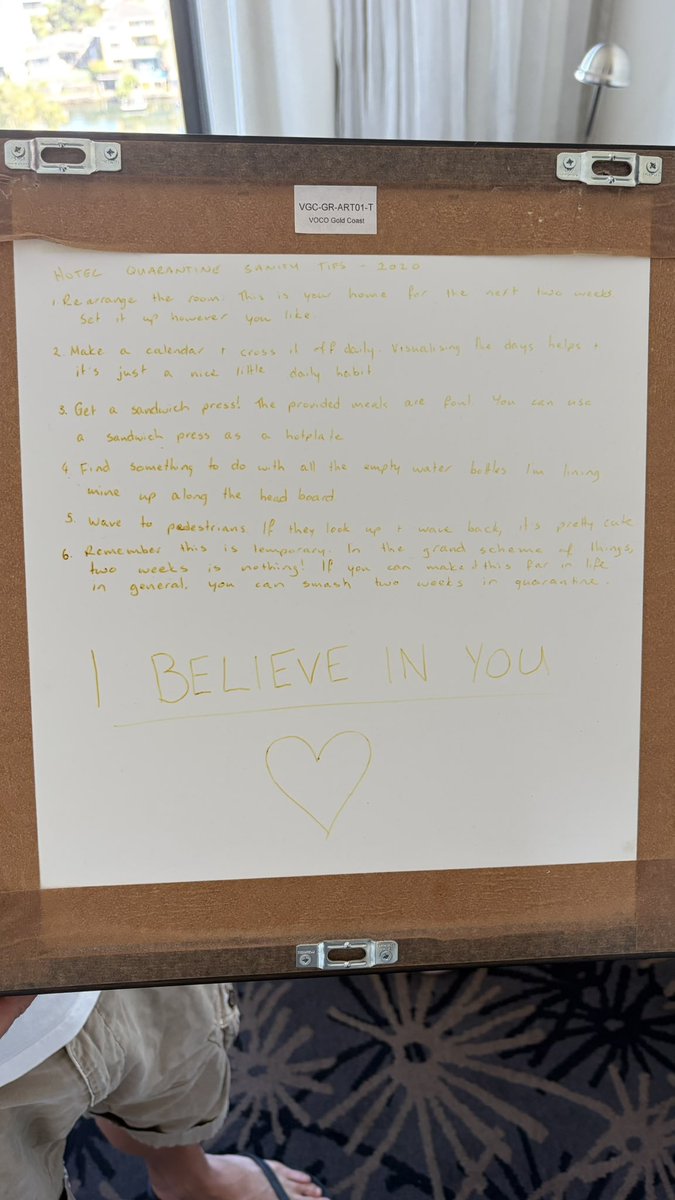 VGC-GR-ART01-T
VOCO Gold Coast
HOTEL QUARANTINE SANITY TIPS - 2020
1. Rearrange the room. This is your home for the next two weeks.
Set it up however you like.
2. Make a calendar + cross it off daily. Visualising the days helps +
it's just a nice little daily habit
3. Get a sandwich press! The provided meals are foul. You can use
a sandwich press as a hotplate
4. Find something to do with all the empty water bottles I'm lining
mine up along the head board
5. Wave to pedestrians If they look up + wave back, it's pretty cute
6. Remember this is temporary. In the grand scheme of things,
two weeks is nothing! If you can make it this far in life
in general, you can smash two weeks in quarantine.
I BELIEVE IN YOU